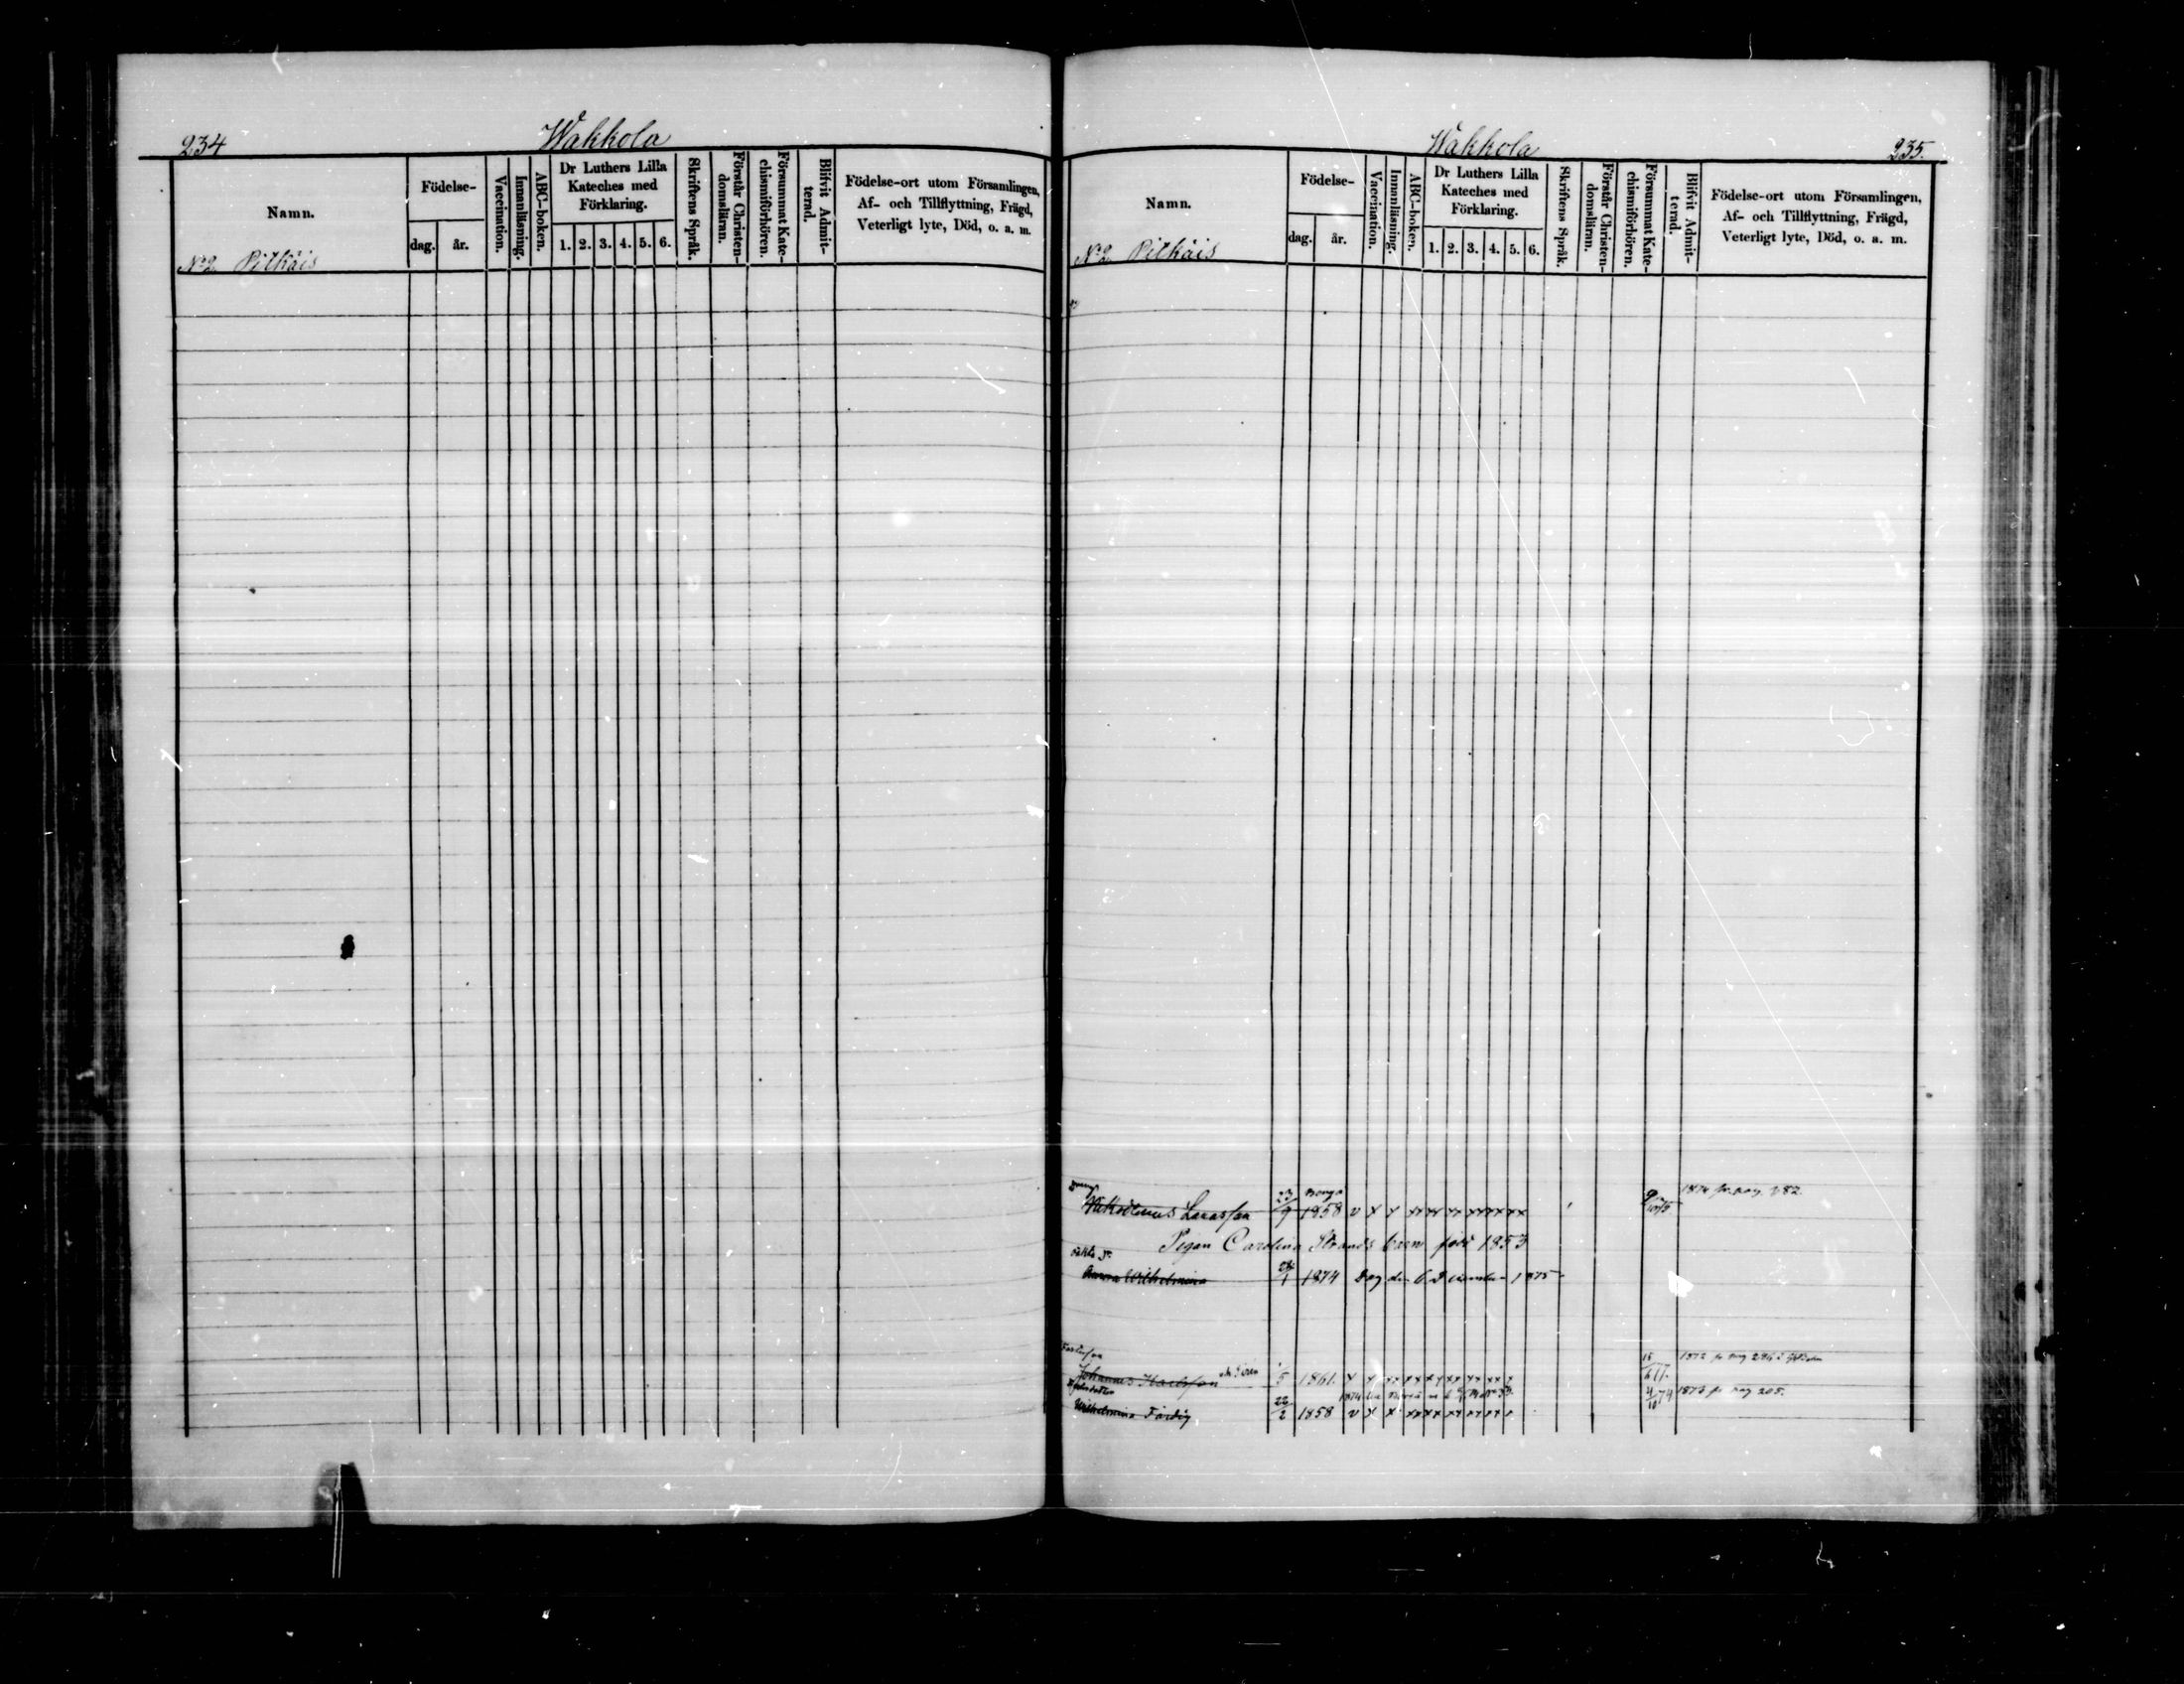 234
Wakkola
Namn.
Födelse-
dag.
år.
Vaccination.
Innanläsning.
ABC-boken.
Dr Luthers Lilla
Kateches med
Förklaring.
1. 2. 3. 4. 5. 6.
Skriftens Språk.
Förstår Christen-
domsläran.
Försummat Kate-
chismiförhören.
Blifvit Admit-
terad.
Födelse-ort utom Församlingen,
Af- och Tillflyttning, Frägd,
Veterligt lyte, Död, o. a. m.
No 2. Pitkäis
Wakkola
235.
Namn.
Födelse-
dag.
år.
Vaccination.
Innanläsning.
ABC-boken.
Dr Luthers Lilla
Kateches med
Förklaring.
1. 2. 3. 4. 5. 6.
Skriftens Språk.
Förstår Christen-
domsläran.
Försummat Kate-
chismiförhören.
Blifvit Admit-
terad.
Födelse-ort utom Församlingen,
Af- och Tillflyttning, Frägd,
Veterligt lyte, Död, o. a. m.
No 2. Pitkäis
23/9 1858 v x x xx xx xx xx xx xx
Pigan Carolina Strands barn född 1853
Aurora Wilhelmina 1874 Dog den 6 December 1875
Johannes 1/5 1861. x x xx xx xx xx xx xx
Wilhelmina Färdig 22/2 1858 v x x xx xx xx xx xx 4/10 74 1873 fr pag 205.